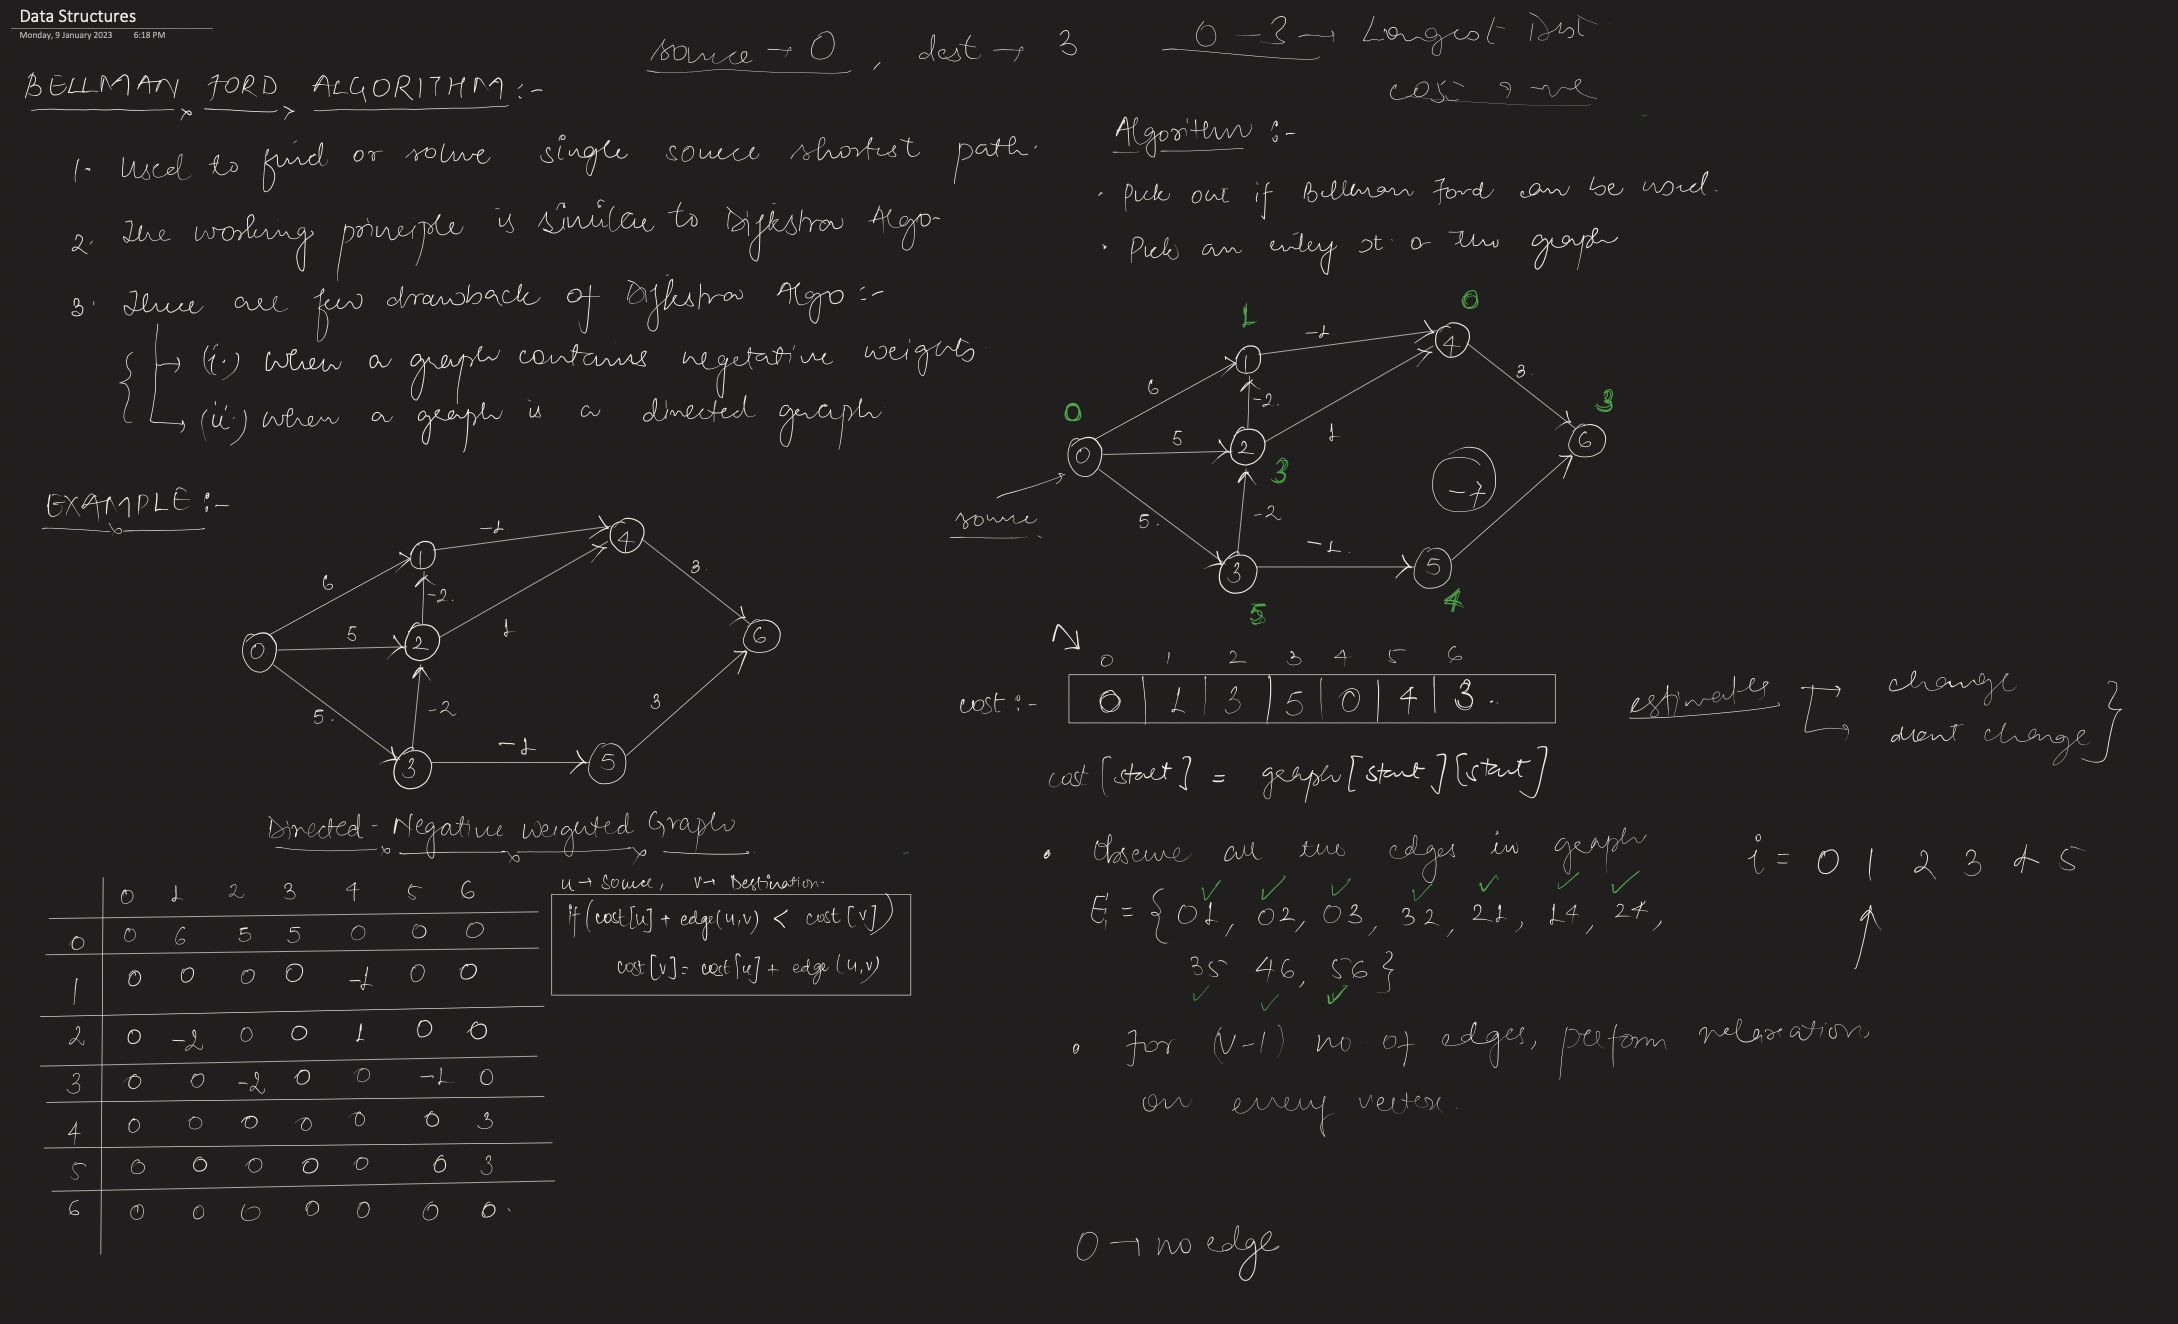 Data Structures
Monday, 9 January 2023 6:18 PM
source → 0 , dest → 3
0 – 3 → Longest Dist
cost → -ve
BELLMAN FORD ALGORITHM :-
1. Used to find or solve single source shortest path.
2. The working principle is similar to Dijkstra Algo-
3. There are few drawback of Dijkstra Algo :-
(i.) when a graph contains negetative weights
(ii.) when a graph is a directed graph
EXAMPLE :-
0 1 2 3 4 5 6
6 5 5. -1 -2. 1 -2 -1 3. 3
Directed - Negative weighted Graph
0 1 2 3 4 5 6
0 0 6 5 5 0 0 0
1 0 0 0 0 -1 0 0
2 0 -2 0 0 1 0 0
3 0 0 -2 0 0 -1 0
4 0 0 0 0 0 0 3
5 0 0 0 0 0 0 3
6 0 0 0 0 0 0 0.
u → source, v → Destination-
if (cost[u] + edge(u,v) < cost[v])
cost[v] = cost[u] + edge (u,v)
Algorithm :-
• Pick out if Bellman Ford can be used.
• Pick an entry st. the graph
0 1 2 3 4 5 6
6 5 5. -1 -2. 1 -2 -1. 3.
0 1 3 5 0 4 3
-7
source
0 1 2 3 4 5 6
cost :- 0 1 3 5 0 4 3.
estimates
change
dont change
cost [start] = graph [start] [start]
• Observe all the edges in graph
E = { 01, 02, 03, 32, 21, 14, 24,
35 46, 56 }
i = 0 1 2 3 4 5
• For (V-1) no. of edges, perform relaxation,
on every vertex.
0 → no edge